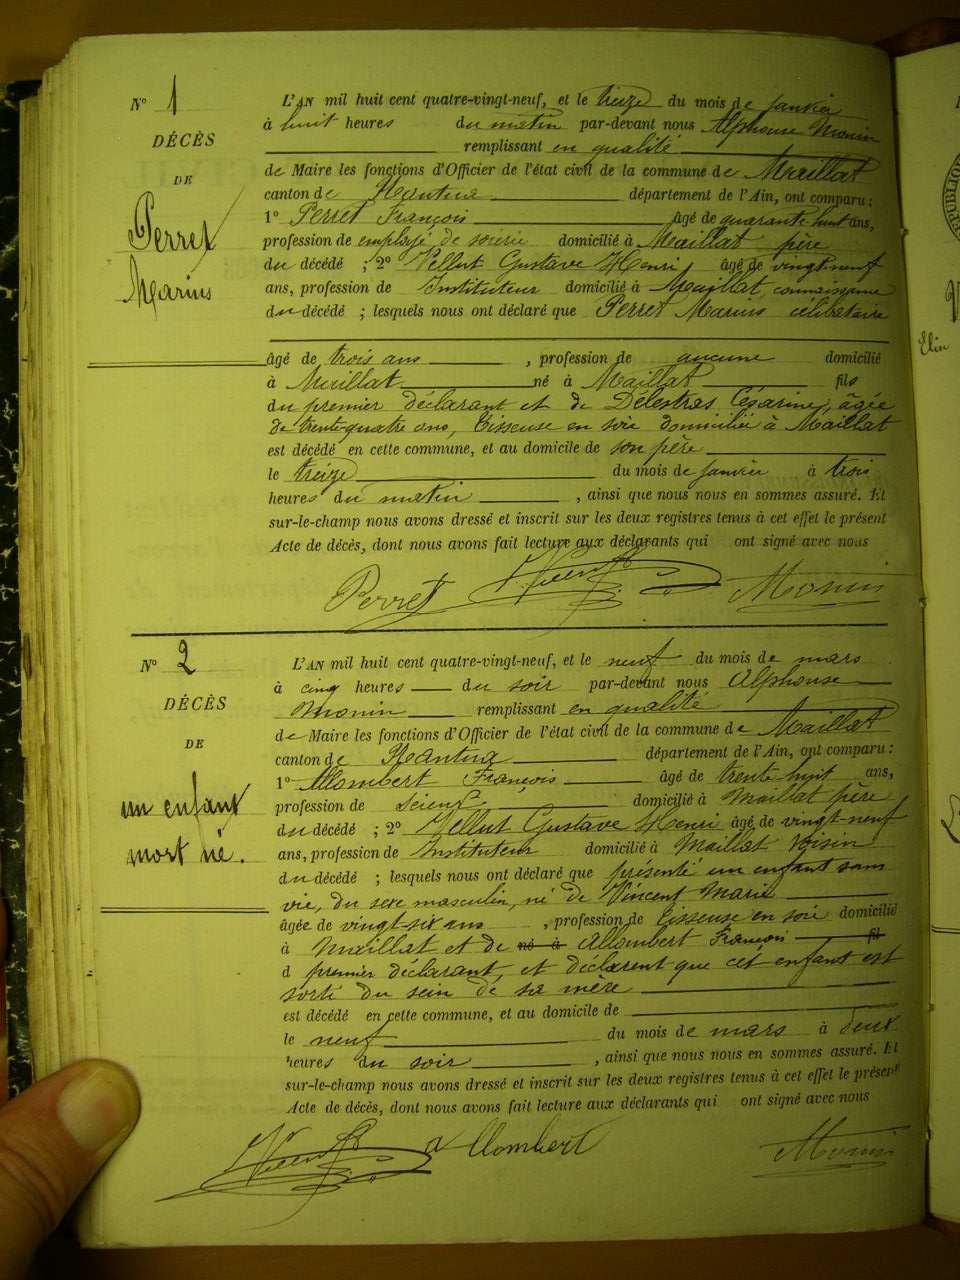 N° 1
DÉCÈS
DE
Perret
Marius
L'AN mil huit cent quatre-vingt-neuf, et le treize du mois de janvier
à huit heures du matin par-devant nous Alphonse Monin
remplissant en qualité
de Maire les fonctions d'Officier de l'état civil de la commune de Maillat
canton de Nantua département de l'Ain, ont comparu :
1° Perret François âgé de quarante huit ans,
profession de employé de soierie domicilié à Maillat père
du décédé ; 2° Vellut Gustave Henri âgé de vingt-neuf
ans, profession de Instituteur domicilié à Maillat, connaissance
du décédé ; lesquels nous ont déclaré que Perret Marius célibataire
âgé de trois ans , profession de aucune domicilié
à Maillat né à Maillat fils
du premier déclarant et de Délestras Césarine, âgée
de trente-quatre ans, tisseuse en soie domiciliée à Maillat
est décédé en cette commune, et au domicile de son père
le treize du mois de janvier à trois
heures du matin , ainsi que nous nous en sommes assuré. Et
sur-le-champ nous avons dressé et inscrit sur les deux registres tenus à cet effet le présent
Acte de décès, dont nous avons fait lecture aux déclarants qui ont signé avec nous
Perret Monin
N° 2
DÉCÈS
DE
un enfant
mort né.
L'AN mil huit cent quatre-vingt-neuf, et le neuf du mois de mars
à cinq heures du soir par-devant nous Alphonse
Monin remplissant en qualité
de Maire les fonctions d'Officier de l'état civil de la commune de Maillat
canton de Nantua département de l'Ain, ont comparu :
1° Allombert François âgé de trente huit ans,
profession de Scieur domicilié à Maillat père
du décédé ; 2° Vellut Gustave Henri âgé de vingt-neuf
ans, profession de Instituteur domicilié à Maillat Voisin
du décédé ; lesquels nous ont déclaré que présenté un enfant sans
vie, du sexe masculin, né de Vincent Marie
âgée de vingt-six ans , profession de tisseuse en soie domicilié
à Maillat et de né à Allombert François fil
d premier déclarant, et déclarent que cet enfant est
sorti du sein de sa mère
est décédé en cette commune, et au domicile de
le neuf du mois de mars à deux
heures du soir , ainsi que nous nous en sommes assuré. Et
sur-le-champ nous avons dressé et inscrit sur les deux registres tenus à cet effet le présent
Acte de décès, dont nous avons fait lecture aux déclarants qui ont signé avec nous
Allombert Monin